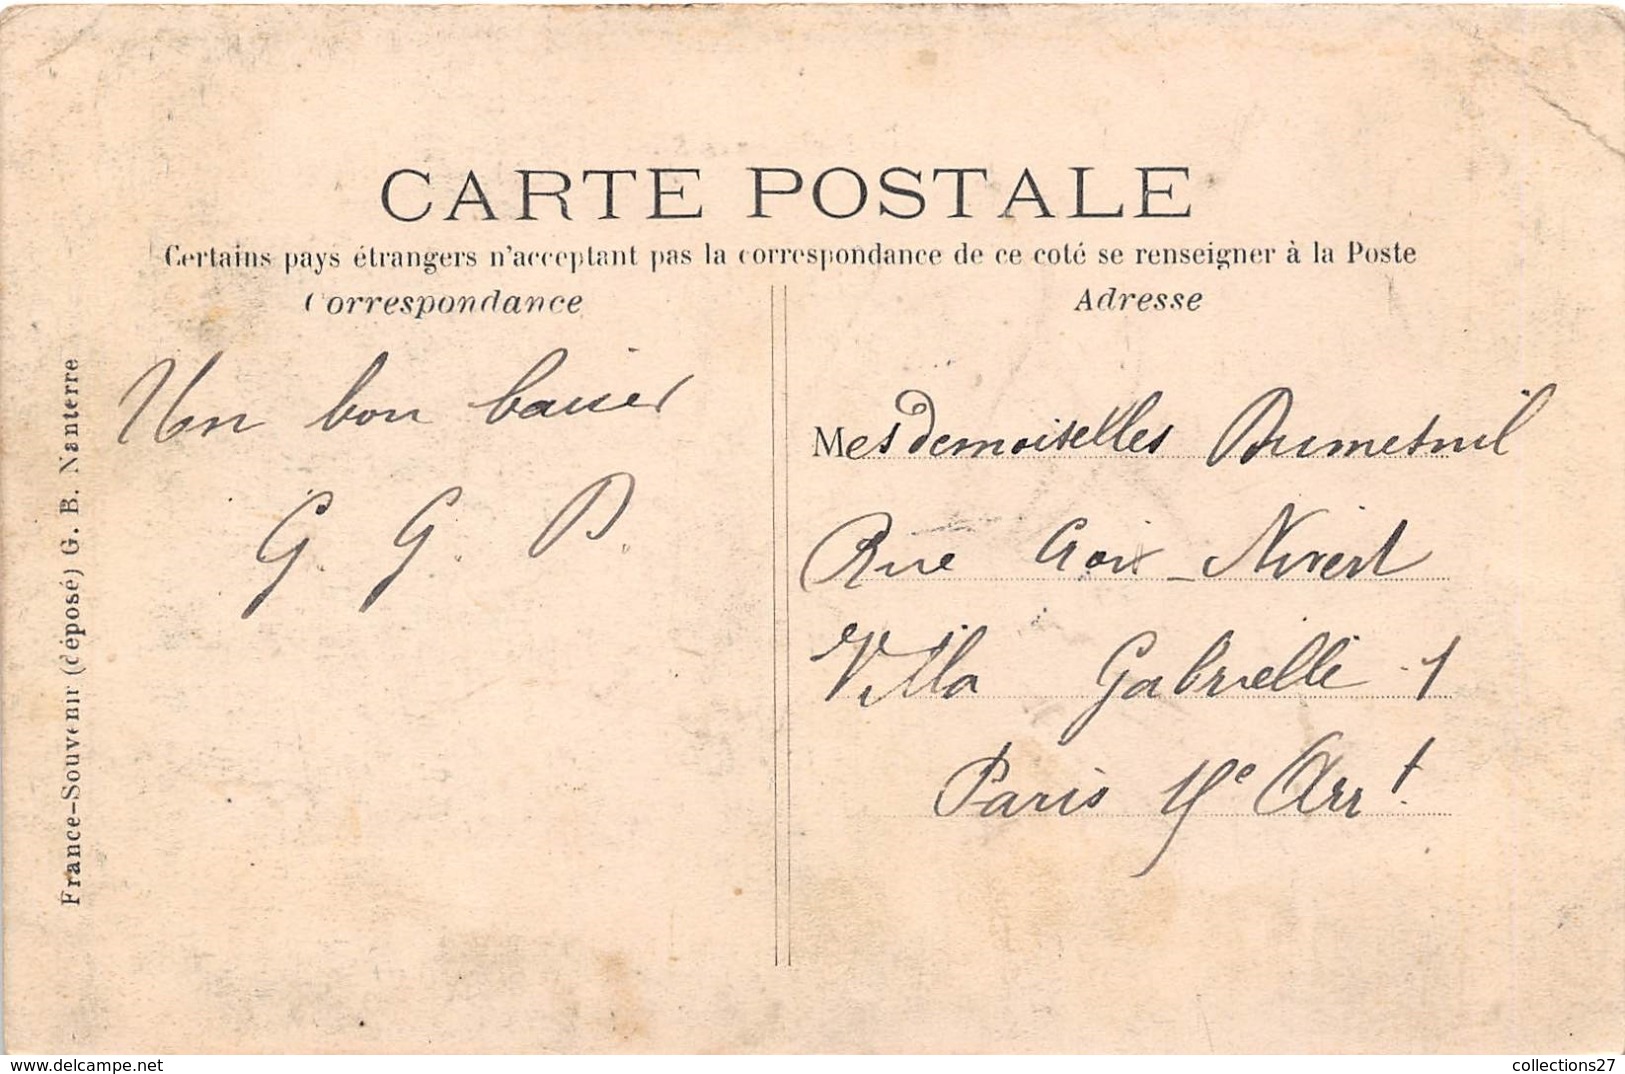 CARTE POSTALE
Certains pays étrangers n'acceptant pas la correspondance de ce coté se renseigner à la Poste
Correspondance
Un bon baiser
G. G. D.
Adresse
Mesdemoiselles Dumesnil
Rue Croix-Nivert
Villa Gabrielle 1
Paris 15e Arrt.
France-Souvenir (déposé) G. B. Nanterre
collections27